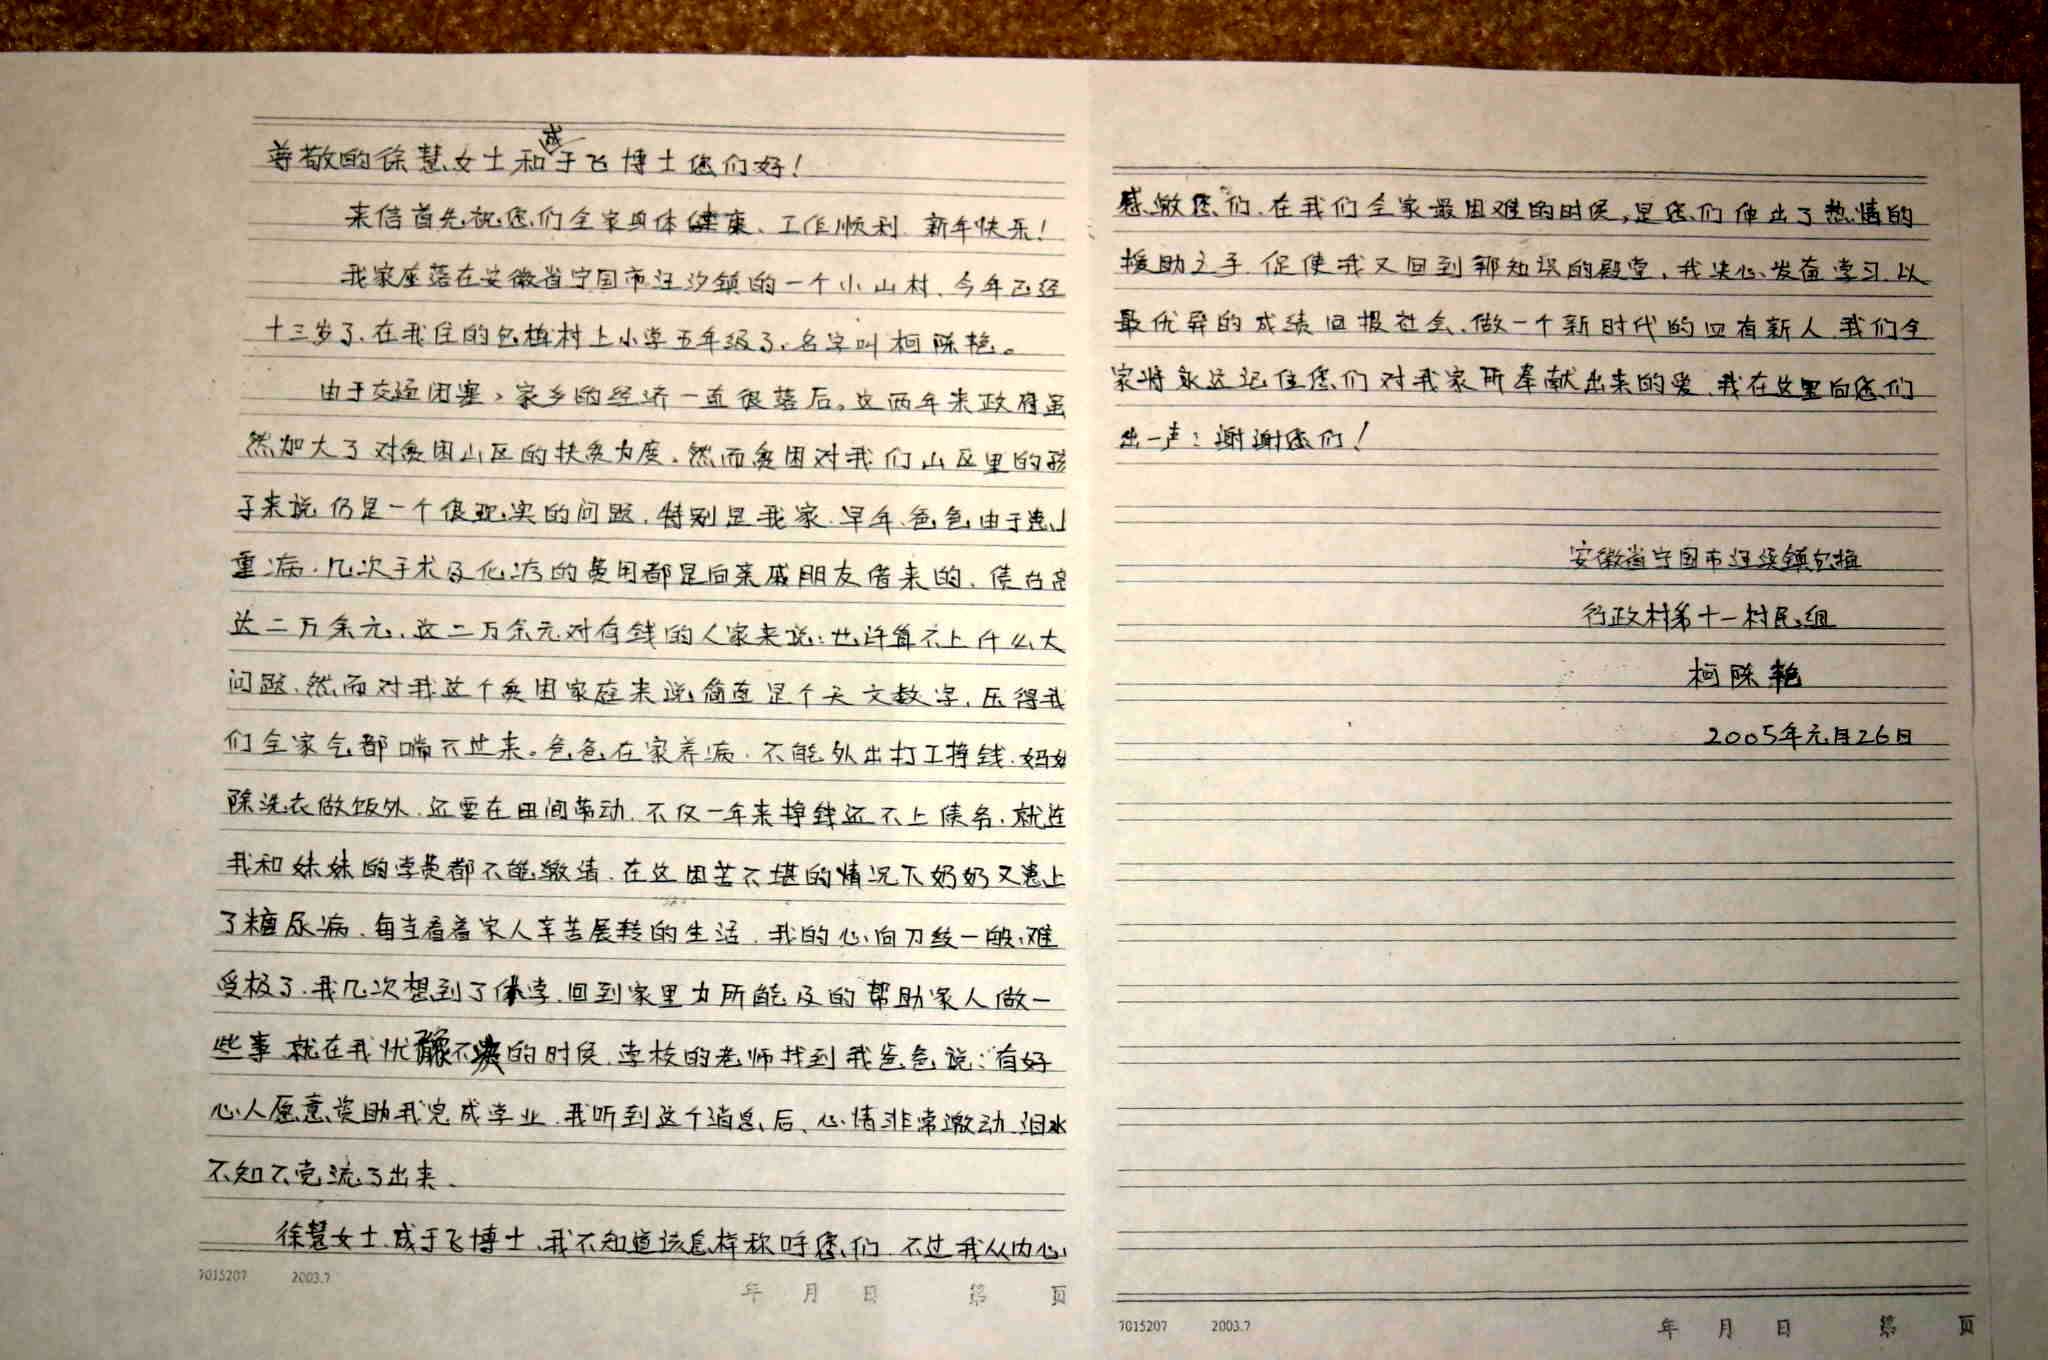 尊敬的徐慧女士和成于飞博士您们好！
来信首先祝您们全家身体健康、工作顺利、新年快乐！
我家座落在安徽省宁国市汪汐镇的一个小山村、今年已经
十三岁了、在我住的包梅村上小学五年级了、名字叫柯陈艳。
由于交通闭塞，家乡的经济一直很落后。这两年来政府虽
然加大了对贫困山区的扶贫力度。然而贫困对我们山区里的孩
子来说仍是一个很现实的问题、特别是我家、早年、爸爸由于患上
重病、几次手术及化疗的费用都是向亲戚朋友借来的、债台高
达二万余元、这二万余元对有钱的人家来说：也许算不上什么大
问题、然而对我这个贫困家庭来说简直是个天文数字、压得我
们全家气都喘不过来。爸爸在家养病、不能外出打工挣钱、妈妈
除洗衣做饭外、还要在田间劳动、不仅一年来挣钱还不上债务、就连
我和妹妹的学费都不能缴清、在这困苦不堪的情况下奶奶又患上
了糖尿病、每当看着家人辛苦展转的生活、我的心向刀绞一般、难
受极了、我几次想到了休学、回到家里力所能及的帮助家人做一
些事、就在我忧豫不决的时侯、学校的老师找到我爸爸说：有好
心人愿意资助我完成学业、我听到这个消息后、心情非常激动、泪水
不知不觉流了出来、
徐慧女士、成于飞博士、我不知道该怎样称呼您们、不过我从内心
7015207 2003.7 年 月 日 第 页
感激您们、在我们全家最困难的时侯，是您们伸出了热情的
援助之手、促使我又回到那知识的殿堂、我决心发奋学习、以
最优异的成绩回报社会、做一个新时代的四有新人、我们全
家将永远记住您们对我家所奉献出来的爱、我在这里向您们
出一声：谢谢您们！
安徽省宁国市汪溪镇包梅
行政村第十一村民组
柯陈艳
2005年元月26日
7015207 2003.7 年 月 日 第 页